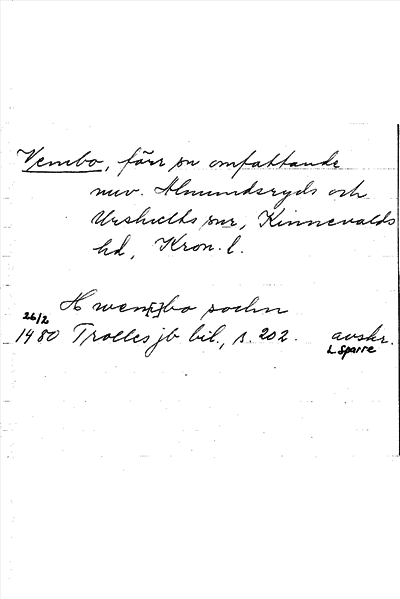 Vembo, förr sn omfattande
nuv. Almundsryds och
Urshults snr, Kinnevalds
hd, Kron. l.
H wen[i]bo sochn
26/2
1480 Trolles jb bil., s. 202. avskr.
L Sparre